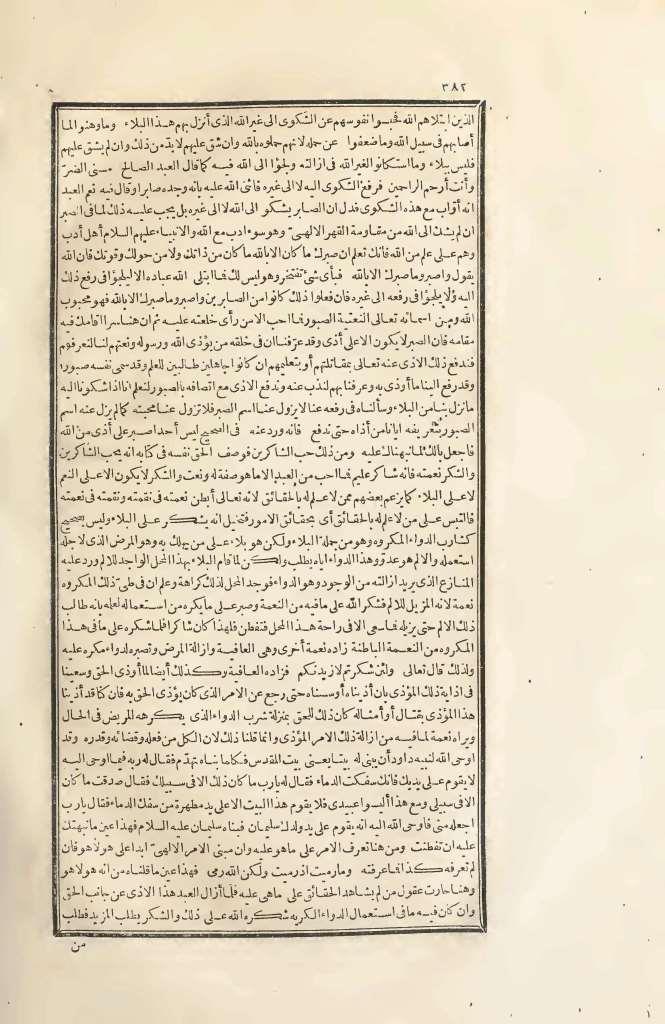 ٣٨٢
الذين ابتلاهم الله فحبسوا نفوسهم عن الشكوى الى غير الله الذى أنزل بهم هذا البلاء وما وهنوا لما
أصابهم فى سبيل الله وما ضعفوا عن حمله لانهم حملوه بالله وان شق عليهم لابدّ من ذلك وان لم يشق عليهم
فليس ببلاء وما استكانوا لغير الله فى ازالته ولجؤا الى الله فيه كما قال العبد الصالح مسنى الضرّ
وأنت أرحم الراحمين فرفع الشكوى اليه لا الى غيره فاثنى الله عليه بانه وجده صابرا وقال فيه نعم العبد
انه أوّاب مع هذه الشكوى فدل ان الصابر يشكو الى الله لا الى غيره بل يجب عليه ذلك لما فى الصبر
ان لم يشك الى الله من مقاومة القهر الالهىّ وهو سوء ادب مع الله والانبياء عليهم السلام أهل أدب
وهم على علم من الله فانك تعلم ان صبرك ما كان الا بالله ما كان من ذاتك ولا من حولك وقوتك فان الله
يقول واصبر وما صبرك الا بالله فبأى شئ تفتخر وهو ليس لك فما ابتلى الله عباده الا ليلجؤا فى رفع ذلك
اليه ولا يلجؤا فى رفعه الى غيره فان فعلوا ذلك كانوا من الصابرين واصبر وما صبرك الا بالله فهو محبوب
الله ومن اسمائه تعالى النعتية الصبور فما احب الا من رأى خلعته عليه ثم ان هنا سرا أقامك فيه
مقامه فان الصبر لا يكون الا على أذى وقد عرّفنا ان فى خلقه من يؤذى الله ورسوله ونعتهم لنا لنعرفهم
فندفع ذلك الاذى عنه تعالى بمقاتلتهم أو بتعليمهم ان كانوا جاهلين طالبين للعلم وقد سمى نفسه صبورا
وقد رفع الينا ما أوذى به وعرفنا بهم لنذب عنه وندفع الاذى مع اتصافه بالصبور لنعلم انا اذا شكونا اليه
ما نزل بنا من البلاء وسألناه فى رفعه عنا لا يزول عنا اسم الصبر فلا تزول عنا محبته كما لم يزل عنه اسم
الصبور بتعريفه ايانا من أذاه حتى ندفع فانه ورد عنه فى الصحيح ليس أحد اصبر على أذى من الله
فاجعل بالك لما نبهناك عليه ومن ذلك حب الشاكرين فوصف الحق نفسه فى كتابه انه يحب الشاكرين
والشكر نعمته فانه شاكر عليم فما احب من العبد الا ما هو صفة له ونعت والشكر لا يكون الا على النعم
لا على البلاء كما يزعم بعضهم ممن لا علم له بالحقائق لانه تعالى أبطن نعمته فى نقمته ونقمته فى نعمته
فالتبس على من لا علم له بالحقائق أى بحقائق الامور فتخيل انه يشكر على البلاء وليس بصحيح
كشارب الدواء المكروه وهو من جملة البلاء ولكن هو بلاء على من يهلك به وهو المرض الذى لاجله
استعمله والالم هو عدوّ وهذا الدواء اياه يطلب ولكن لما قام البلاء بهذا المحل الواجد للالم ورد عليه
المنازع الذى يريد ازالته من الوجود وهو الدواء فوجد المحل لذلك كراهة وعلم ان فى طىّ ذلك المكروه
نعمة لانه المزيل للالم فشكر الله على ما فيه من النعمة وصبر على ما يكره من استعماله لعلمه بانه طالب
ذلك الالم حتى يزيله فما سعى الا فى راحة هذا المحل فتفطن فلهذا كان شاكرا فلما شكره على ما فى هذا
المكروه من النعمة الباطنة زاده نعمة أخرى وهى العافية وازالة المرض وتصبره لدواء مكره عليه
ولذلك قال تعالى ولئن شكرتم لازيدنكم فزاده العافية وكذلك أيضا لما أوذى الحق وسعينا
فى اذاية ذلك المؤذى بان أذيناه أو سسناه حتى رجع عن الامر الذى كان يؤذى الحق به فان كنا قد أذينا
هذا المؤذى بقتال أو أمثاله كان ذلك للحق بمنزلة شرب الدواء الذى يكرهه المريض فى الحال
ويراه نعمة لما فيه من ازالة ذلك الامر المؤذى وانما قلنا ذلك لان الكل من فعله وقضائه وقدره وقد
اوحى الله لنبيه داود أن يبنى له بيتا يعنى بيت المقدس فكلما بناه تهدّم فقال له ربه فيما اوحى اليه
لا يقوم على يديك فانك سفكت الدماء فقال له يا رب ما كان ذلك الا فى سبيلك فقال صدقت ما كان
الا فى سبيلى ومع هذا أليسوا عبيدى فلا يقوم هذا البيت الا على يد مطهرة من سفك الدماء فقال يا رب
اجعله منى فاوحى الله اليه انه يقوم على يد ولدك سليمان فبناه سليمان عليه السلام فهذا عين ما نبهتك
عليه ان تفطنت ومن هنا تعرف الامر على ما هو عليه وان مبنى الامر الالهىّ ابدا على هو لا هو فان
لم تعرفه كذا فما عرفته وما رميت اذ رميت ولكن الله رمى فهذا عين ما قلناه من انه هو لا هو
وهنا حارت عقول من لم يشاهد الحقائق على ما هى عليه فلما أزال العبد هذا الاذى عن جانب الحق
وان كان فيه ما فى استعمال الدواء الكريه شكره الله على ذلك والشكر يطلب المزيد فطلب
من